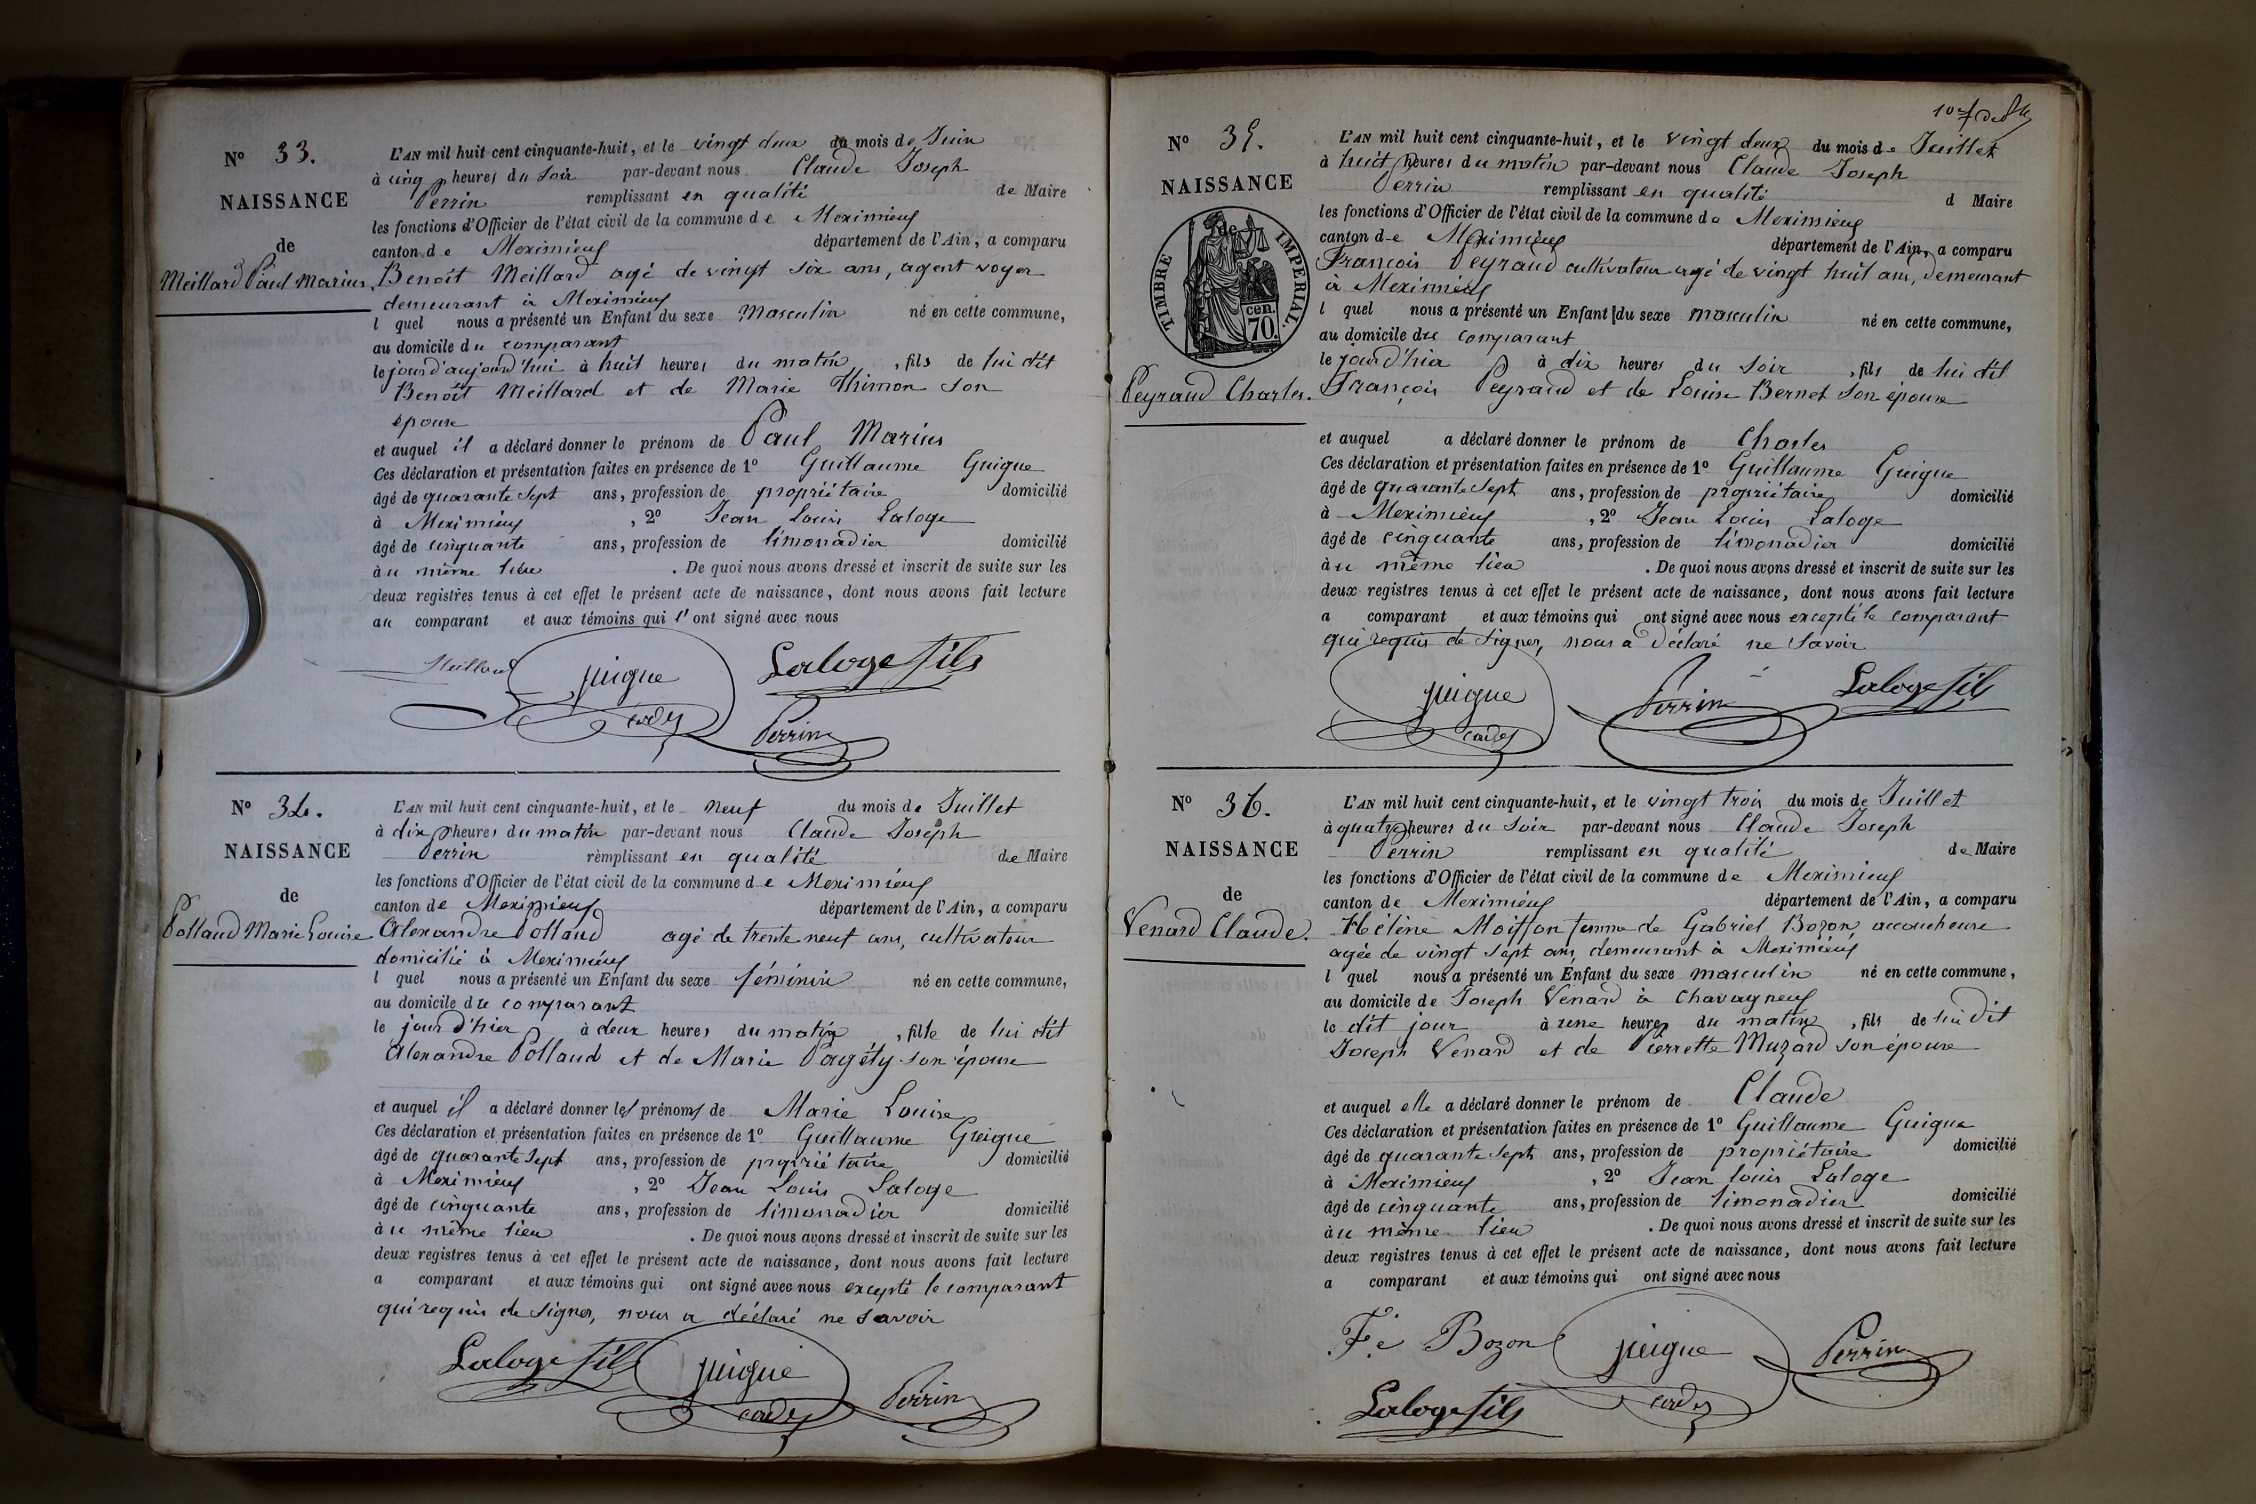 N° 33.
NAISSANCE
de
Meillard Paul Marius
L'AN mil huit cent cinquante-huit, et le vingt deux du mois de Juin
à cinq heures du soir par-devant nous Claude Joseph
Perrin remplissant en qualité de Maire
les fonctions d'Officier de l'état civil de la commune de Meximieux
canton de Meximieux département de l'Ain, a comparu
Benoît Meillard agé de vingt six ans, agent voyer
demeurant à Meximieux
l quel nous a présenté un Enfant du sexe Masculin né en cette commune,
au domicile du comparant
le jour d'aujourd'hui à huit heures du matin, fils de lui dit
Benoît Meillard et de Marie Thimon son
épouse
et auquel il a déclaré donner le prénom de Paul Marius
Ces déclaration et présentation faites en présence de 1° Guillaume Guigue
âgé de quarante sept ans, profession de propriétaire domicilié
à Meximieux, 2° Jean Louis Laloge
âgé de cinquante ans, profession de limonadier domicilié
à u même lieu. De quoi nous avons dressé et inscrit de suite sur les
deux registres tenus à cet effet le présent acte de naissance, dont nous avons fait lecture
au comparant et aux témoins qui l' ont signé avec nous
Meillard Guigue Laloge fils
Perrin
N° 34.
NAISSANCE
de
Polland Marie Louise
L'AN mil huit cent cinquante-huit, et le neuf du mois de Juillet
à dix heures du matin par-devant nous Claude Joseph
Perrin remplissant en qualité de Maire
les fonctions d'Officier de l'état civil de la commune de Meximieux
canton de Meximieux département de l'Ain, a comparu
Alexandre Polland agé de trente neuf ans, cultivateur
domicilié à Meximieux
l quel nous a présenté un Enfant du sexe féminin né en cette commune,
au domicile du comparant
le jour d'hier à deux heures du matin, fille de lui dit
Alexandre Polland et de Marie Pagéty son épouse
et auquel il a déclaré donner les prénoms de Marie Louise
Ces déclaration et présentation faites en présence de 1° Guillaume Guigue
âgé de quarante sept ans, profession de propriétaire domicilié
à Meximieux, 2° Jean Louis Laloge
âgé de cinquante ans, profession de limonadier domicilié
à u même lieu. De quoi nous avons dressé et inscrit de suite sur les
deux registres tenus à cet effet le présent acte de naissance, dont nous avons fait lecture
a comparant et aux témoins qui ont signé avec nous excepté le comparant
qui requis de signer, nous a déclaré ne savoir
Laloge fils Guigue Perrin
N° 35.
NAISSANCE
de
TIMBRE IMPERIAL.
70. cen.
Peyraud Charles.
L'AN mil huit cent cinquante-huit, et le vingt deux du mois de Juillet
à huit heures du matin par-devant nous Claude Joseph
Perrin remplissant en qualité d Maire
les fonctions d'Officier de l'état civil de la commune de Meximieux
canton de Meximieux département de l'Ain, a comparu
François Peyraud cultivateur agé de vingt huit ans, demeurant
à Meximieux
l quel nous a présenté un Enfant du sexe masculin né en cette commune,
au domicile du comparant
le jour d'hier à dix heures du soir, fils de lui dit
François Peyraud et de Louise Bernet son épouse
et auquel a déclaré donner le prénom de Charles
Ces déclaration et présentation faites en présence de 1° Guillaume Guigue
âgé de quarante sept ans, profession de propriétaire domicilié
à Meximieux, 2° Jean Louis Laloge
âgé de cinquante ans, profession de limonadier domicilié
à u même lieu. De quoi nous avons dressé et inscrit de suite sur les
deux registres tenus à cet effet le présent acte de naissance, dont nous avons fait lecture
a comparant et aux témoins qui ont signé avec nous excepté le comparant
qui requis de signer, nous a déclaré ne savoir
Guigue Perrin Laloge fils
N° 36.
NAISSANCE
de
Venard Claude.
L'AN mil huit cent cinquante-huit, et le vingt trois du mois de Juillet
à quatre heures du soir par-devant nous Claude Joseph
Perrin remplissant en qualité de Maire
les fonctions d'Officier de l'état civil de la commune de Meximieux
canton de Meximieux département de l'Ain, a comparu
Hélène Moiffon femme de Gabriel Bozon, accoucheuse
agée de vingt sept ans, demeurant à Meximieux
l quel nous a présenté un Enfant du sexe masculin né en cette commune,
au domicile de Joseph Venard à Chavagneux
le dit jour à une heure du matin, fils de lui dit
Joseph Venard et de Pierrette Muzard son épouse
et auquel elle a déclaré donner le prénom de Claude
Ces déclaration et présentation faites en présence de 1° Guillaume Guigue
âgé de quarante sept ans, profession de propriétaire domicilié
à Meximieux, 2° Jean Louis Laloge
âgé de cinquante ans, profession de limonadier domicilié
à u même lieu. De quoi nous avons dressé et inscrit de suite sur les
deux registres tenus à cet effet le présent acte de naissance, dont nous avons fait lecture
a comparant et aux témoins qui ont signé avec nous
Fe Bozon Guigue Perrin
Laloge fils